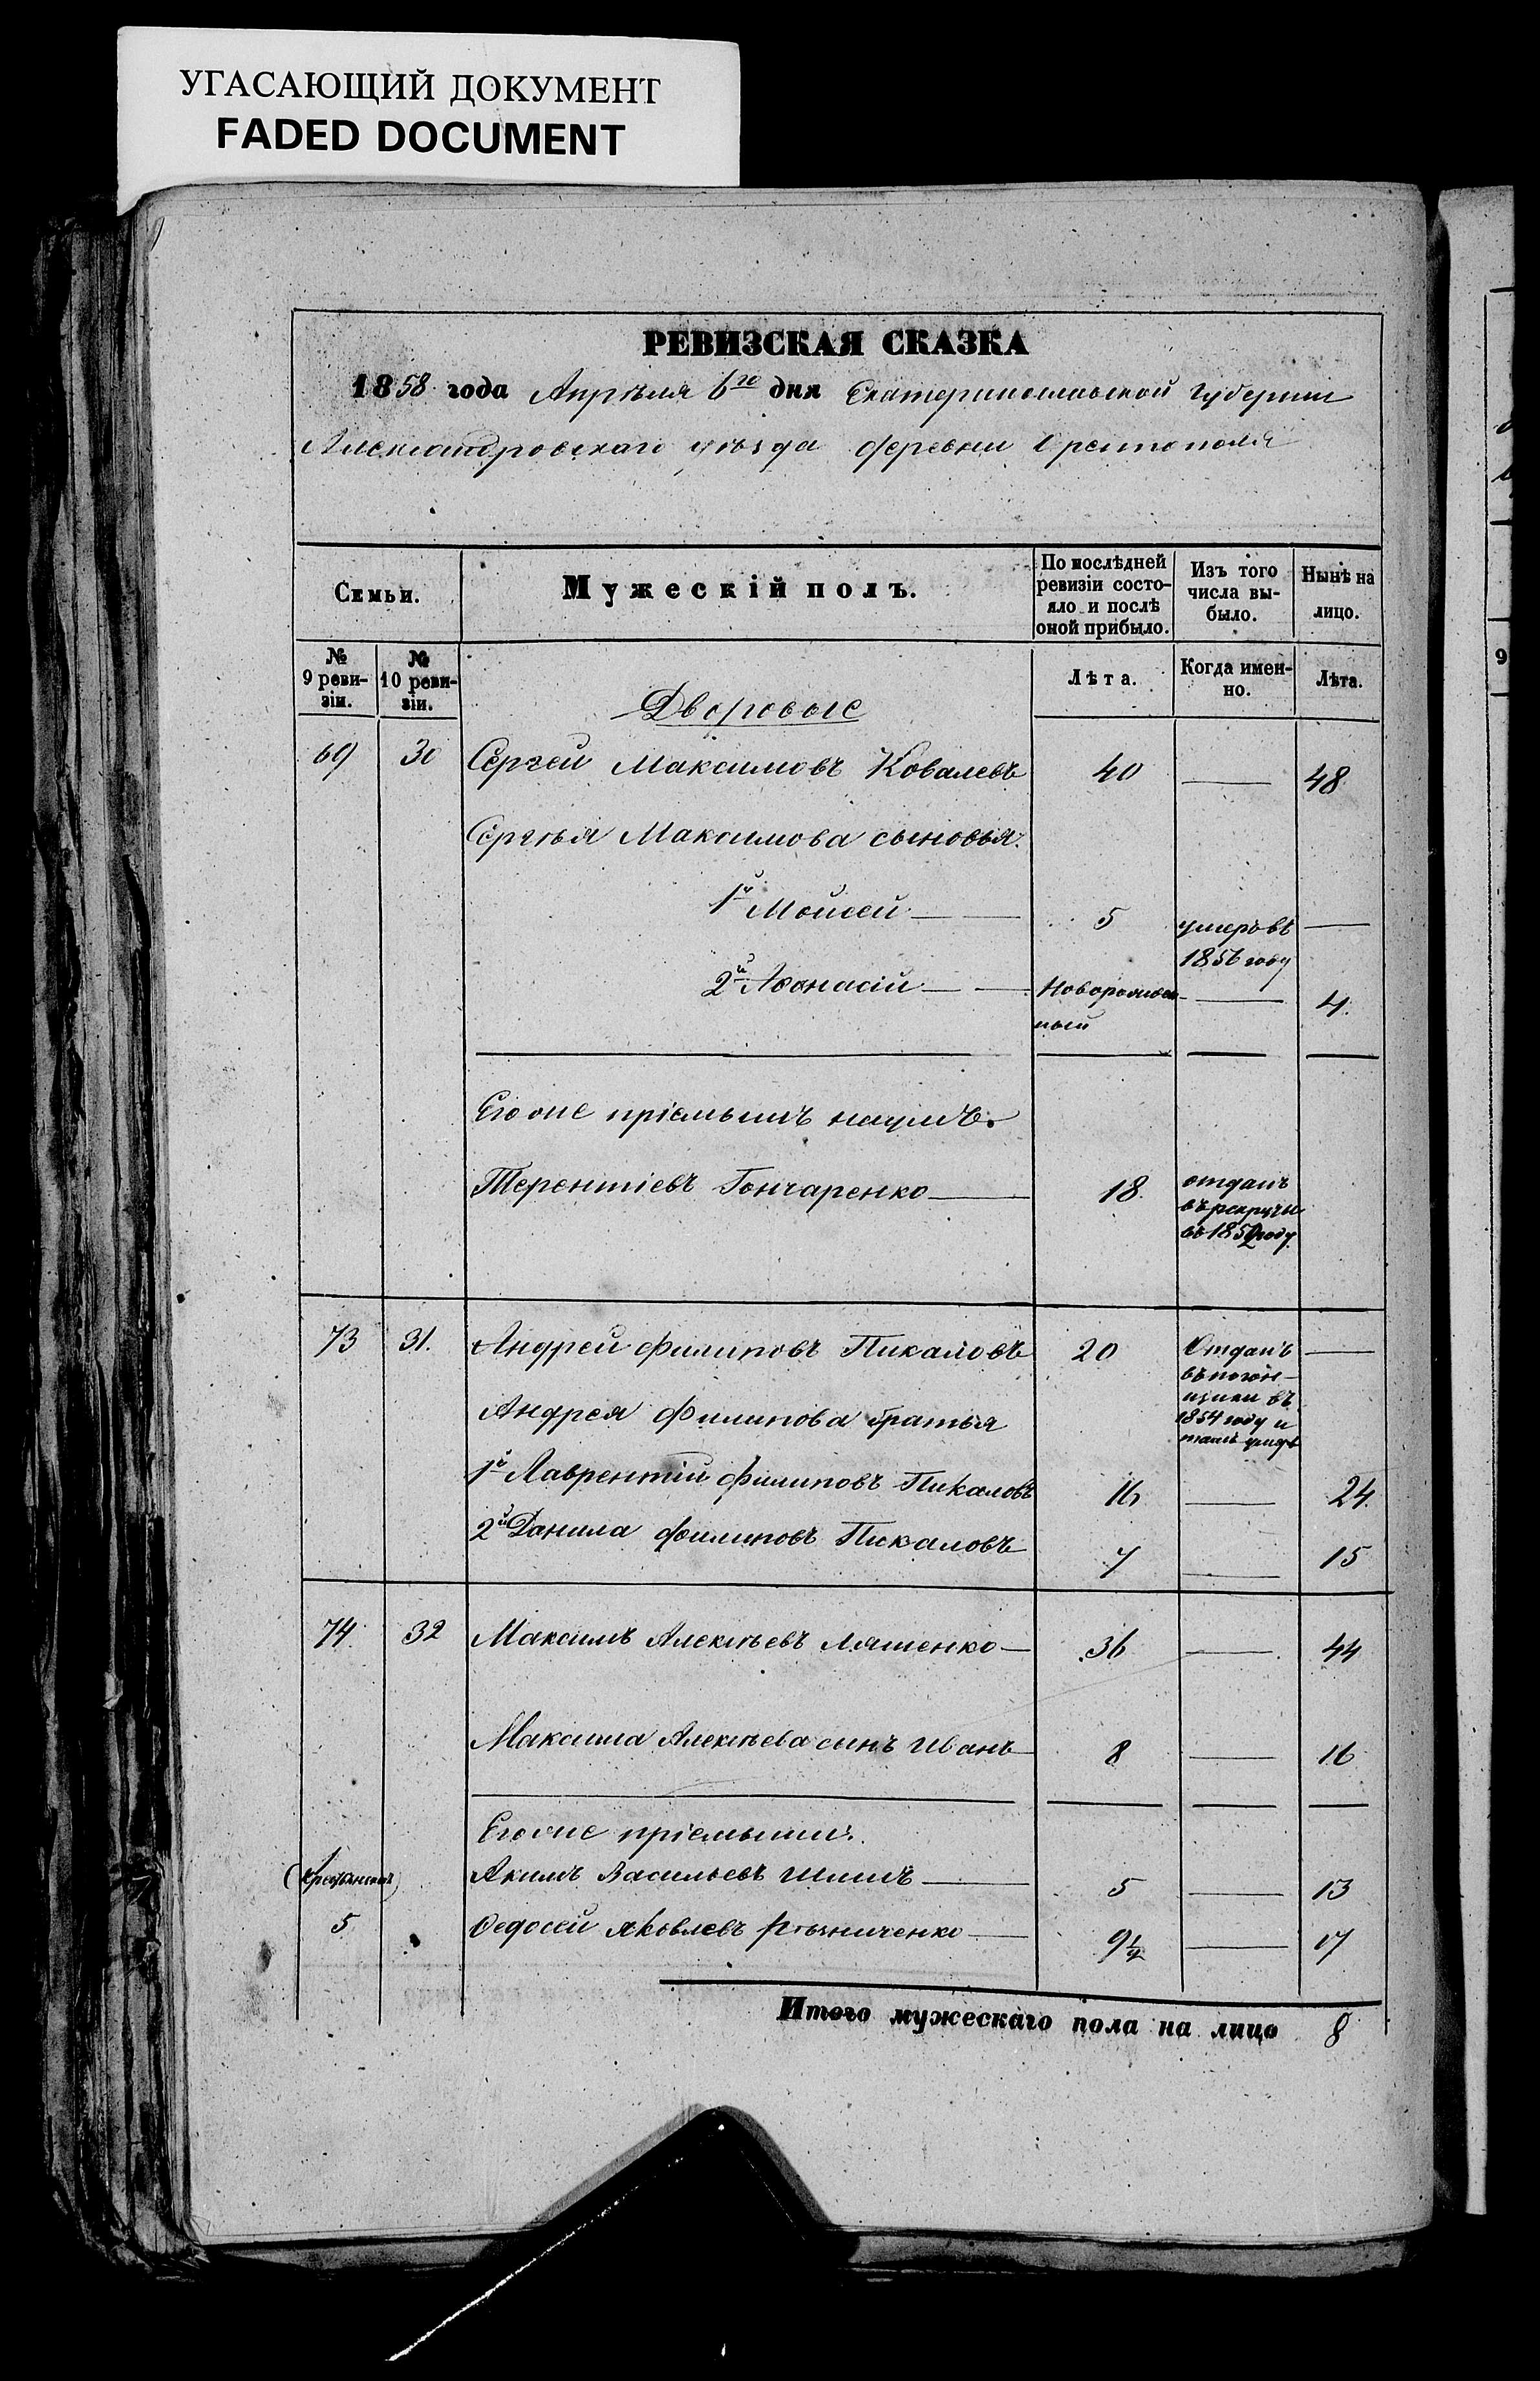 УГАСАЮЩИЙ ДОКУМЕНТ
FADED DOCUMENT
РЕВИЗСКАЯ СКАЗКА
1858 года Апрѣля 6го дня Екатеринославской губернии
Александровскаго уѣзда деревни Орестополя
Семьи.
Мужескій полъ.
По послѣдней ревизіи состо-
яло и послѣ
оной прибыло.
Изъ того
числа вы-
было.
Нынѣ на
лицо.
№
9 реви-
зіи.
№
10 реви-
зіи.
Лѣта.
Когда имен-
но.
Лѣта.
Дворовые
69 30 Сергей Максимовъ Ковалевъ 40 — 48
Сергѣя Максимова сыновья.
1й Моисей — 5 умеръ въ —
1856 году
2й Афонасій — Новорожден- — 4.
ный
Его же пріемышъ наумъ
Терентіевъ Гончаренко — 18. отданъ
въ рекруты
въ 1852 году.
73 31. Андрей Филиповъ Пикаловъ 20 Отданъ —
въ погон-
щики въ
1854 году и
тамъ умре
Андрея Филипова братья
1й Лаврентій Филиповъ Пикаловъ 16 — 24.
2й Данила Филиповъ Пикаловъ 7 — 15
74. 32 Максимъ Алексѣевъ Ляшенко — 36 — 44
Максима Алексѣева сынъ Иванъ 8 — 16
Его же пріемыши.
(Крестьянской) Акимъ Васильевъ Шишъ — 5 — 13
5 Федосей Яковлевъ Рѣзниченко — 9½ — 17
Итого мужескаго пола на лицо 8